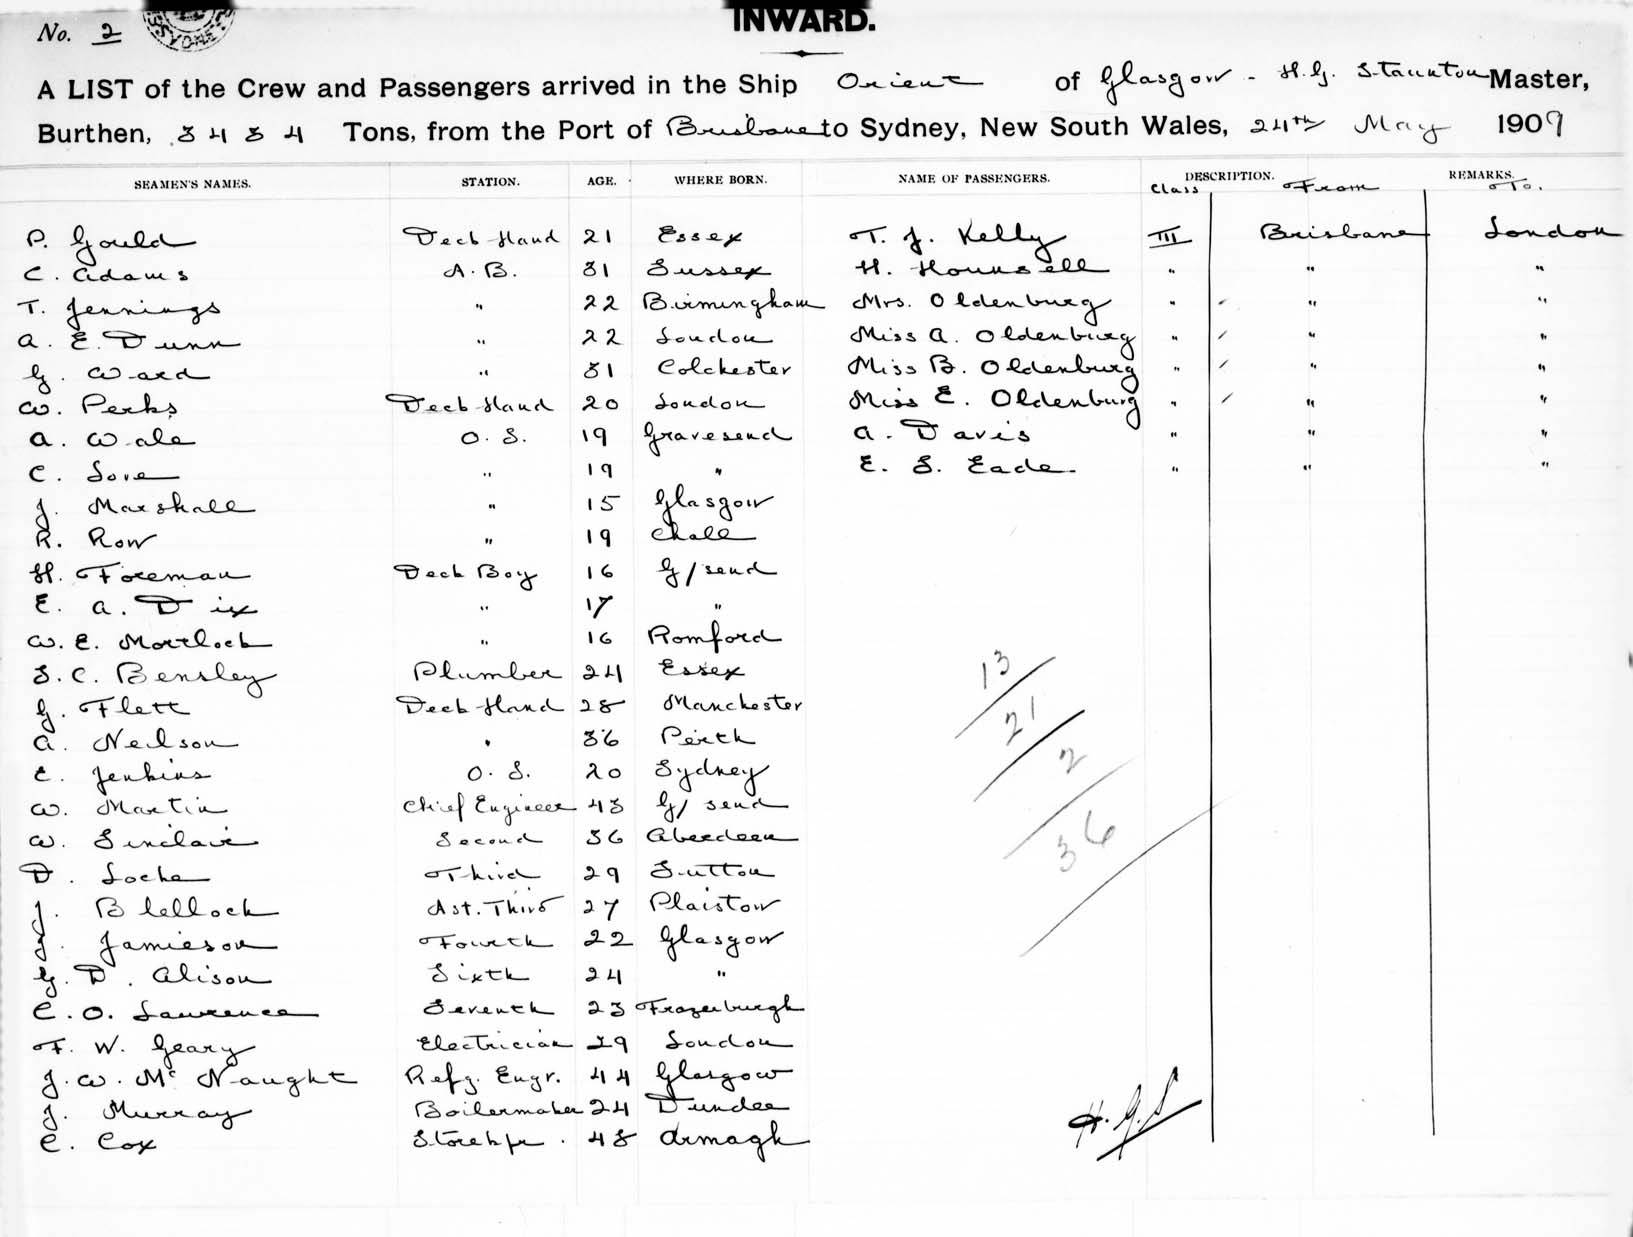 No. 2
SYDNEY
INWARD.
A LIST of the Crew and Passengers arrived in the Ship Orient of Glasgow - H. G. Staunton Master,
Burthen, 5454 Tons, from the Port of Brisbane to Sydney, New South Wales, 24th May 1909
SEAMEN'S NAMES. STATION. AGE. WHERE BORN. NAME OF PASSENGERS. DESCRIPTION. REMARKS.
Class From To.
P. Gould Deck Hand 21 Essex T. J. Kelly III Brisbane London
C. Adams A.B. 31 Sussex H. Hounsell " " "
T. Jennings " 22 Birmingham Mrs. Oldenburg " " "
A. E. Dunn " 22 London Miss A. Oldenburg " " "
G. Ward " 31 Colchester Miss B. Oldenburg " " "
W. Perks Deck Hand 20 London Miss E. Oldenburg " " "
A. Wale O.S. 19 Gravesend A. Davis " " "
C. Love " 19 " E. S. Eade " " "
J. Marshall " 15 Glasgow
R. Row " 19 Chall
H. Foreman Deck Boy 16 G/send
E. A. Dix " 17 "
W. E. Mortlock " 16 Romford
S. C. Bensley Plumber 24 Essex
G. Flett Deck Hand 28 Manchester
A. Neilson " 36 Perth
E. Jenkins O.S. 20 Sydney
W. Martin Chief Engineer 43 G/send
W. Sinclair Second 36 Aberdeen
D. Locke Third 29 Sutton
J. Blellock Ast. Third 27 Plaistow
J. Jamieson Fourth 22 Glasgow
G. D. Alison Sixth 24 "
C. O. Lawrence Seventh 23 Frazerburgh
F. W. Geary Electrician 29 London
J. W. McNaught Refg. Engr. 44 Glasgow
J. Murray Boilermaker 24 Dundee
C. Cox Storekpr. 48 Armagh
13
21
2
36
H.G.S